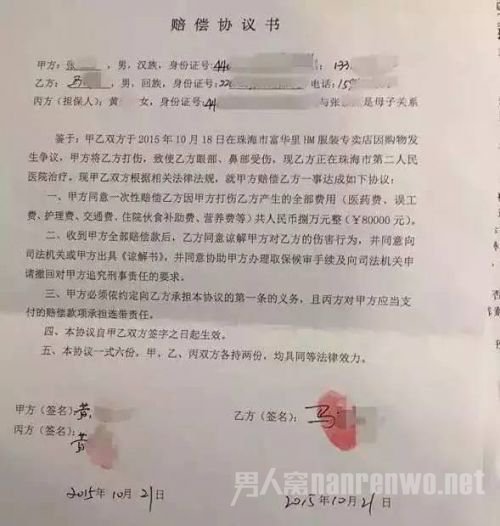 赔偿协议书
甲方：张 ，男，汉族，身份证号：44 ：133
乙方：马 ，男，回族，身份证号：220 电话：159
丙方（担保人）：黄 女，身份证号：44 与张 是母子关系
鉴于：甲乙双方于2015年10月18日在珠海市富华里HM服装专卖店因购物发
生争议，甲方将乙方打伤，致使乙方眼部、鼻部受伤，现乙方正在珠海市第二人民
医院治疗。现甲乙双方根据相关法律法规，就甲方赔偿乙方一事达成如下协议：
一、甲方同意一次性赔偿乙方因甲方打伤乙方产生的全部费用（医药费、误工
费、护理费、交通费、住院伙食补助费、营养费等）共人民币捌万元整（¥80000元）。
二、收到甲方全部赔偿款后，乙方同意谅解甲方对乙方的伤害行为，并同意向
司法机关或甲方出具《谅解书》，并同意协助甲方办理取保候审手续及向司法机关申
请撤回对甲方追究刑事责任的要求。
三、甲方必须依约定向乙方承担本协议的第一条的义务，且丙方对甲方应当支
付的赔偿款项承担连带责任。
四、本协议自甲乙双方签字之日起生效。
五、本协议一式六份，甲、乙、丙双方各持两份，均具同等法律效力。
甲方（签名）：黄 乙方（签名）：马
丙方（签名）：黄
2015年10月21日 2015年10月21日
男人窝nanrenwo.net